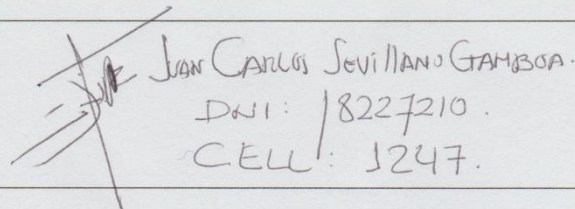 JUAN CARLOS SEVILLANO GAMBOA.
DNI: 18227210.
CELL: 1247.